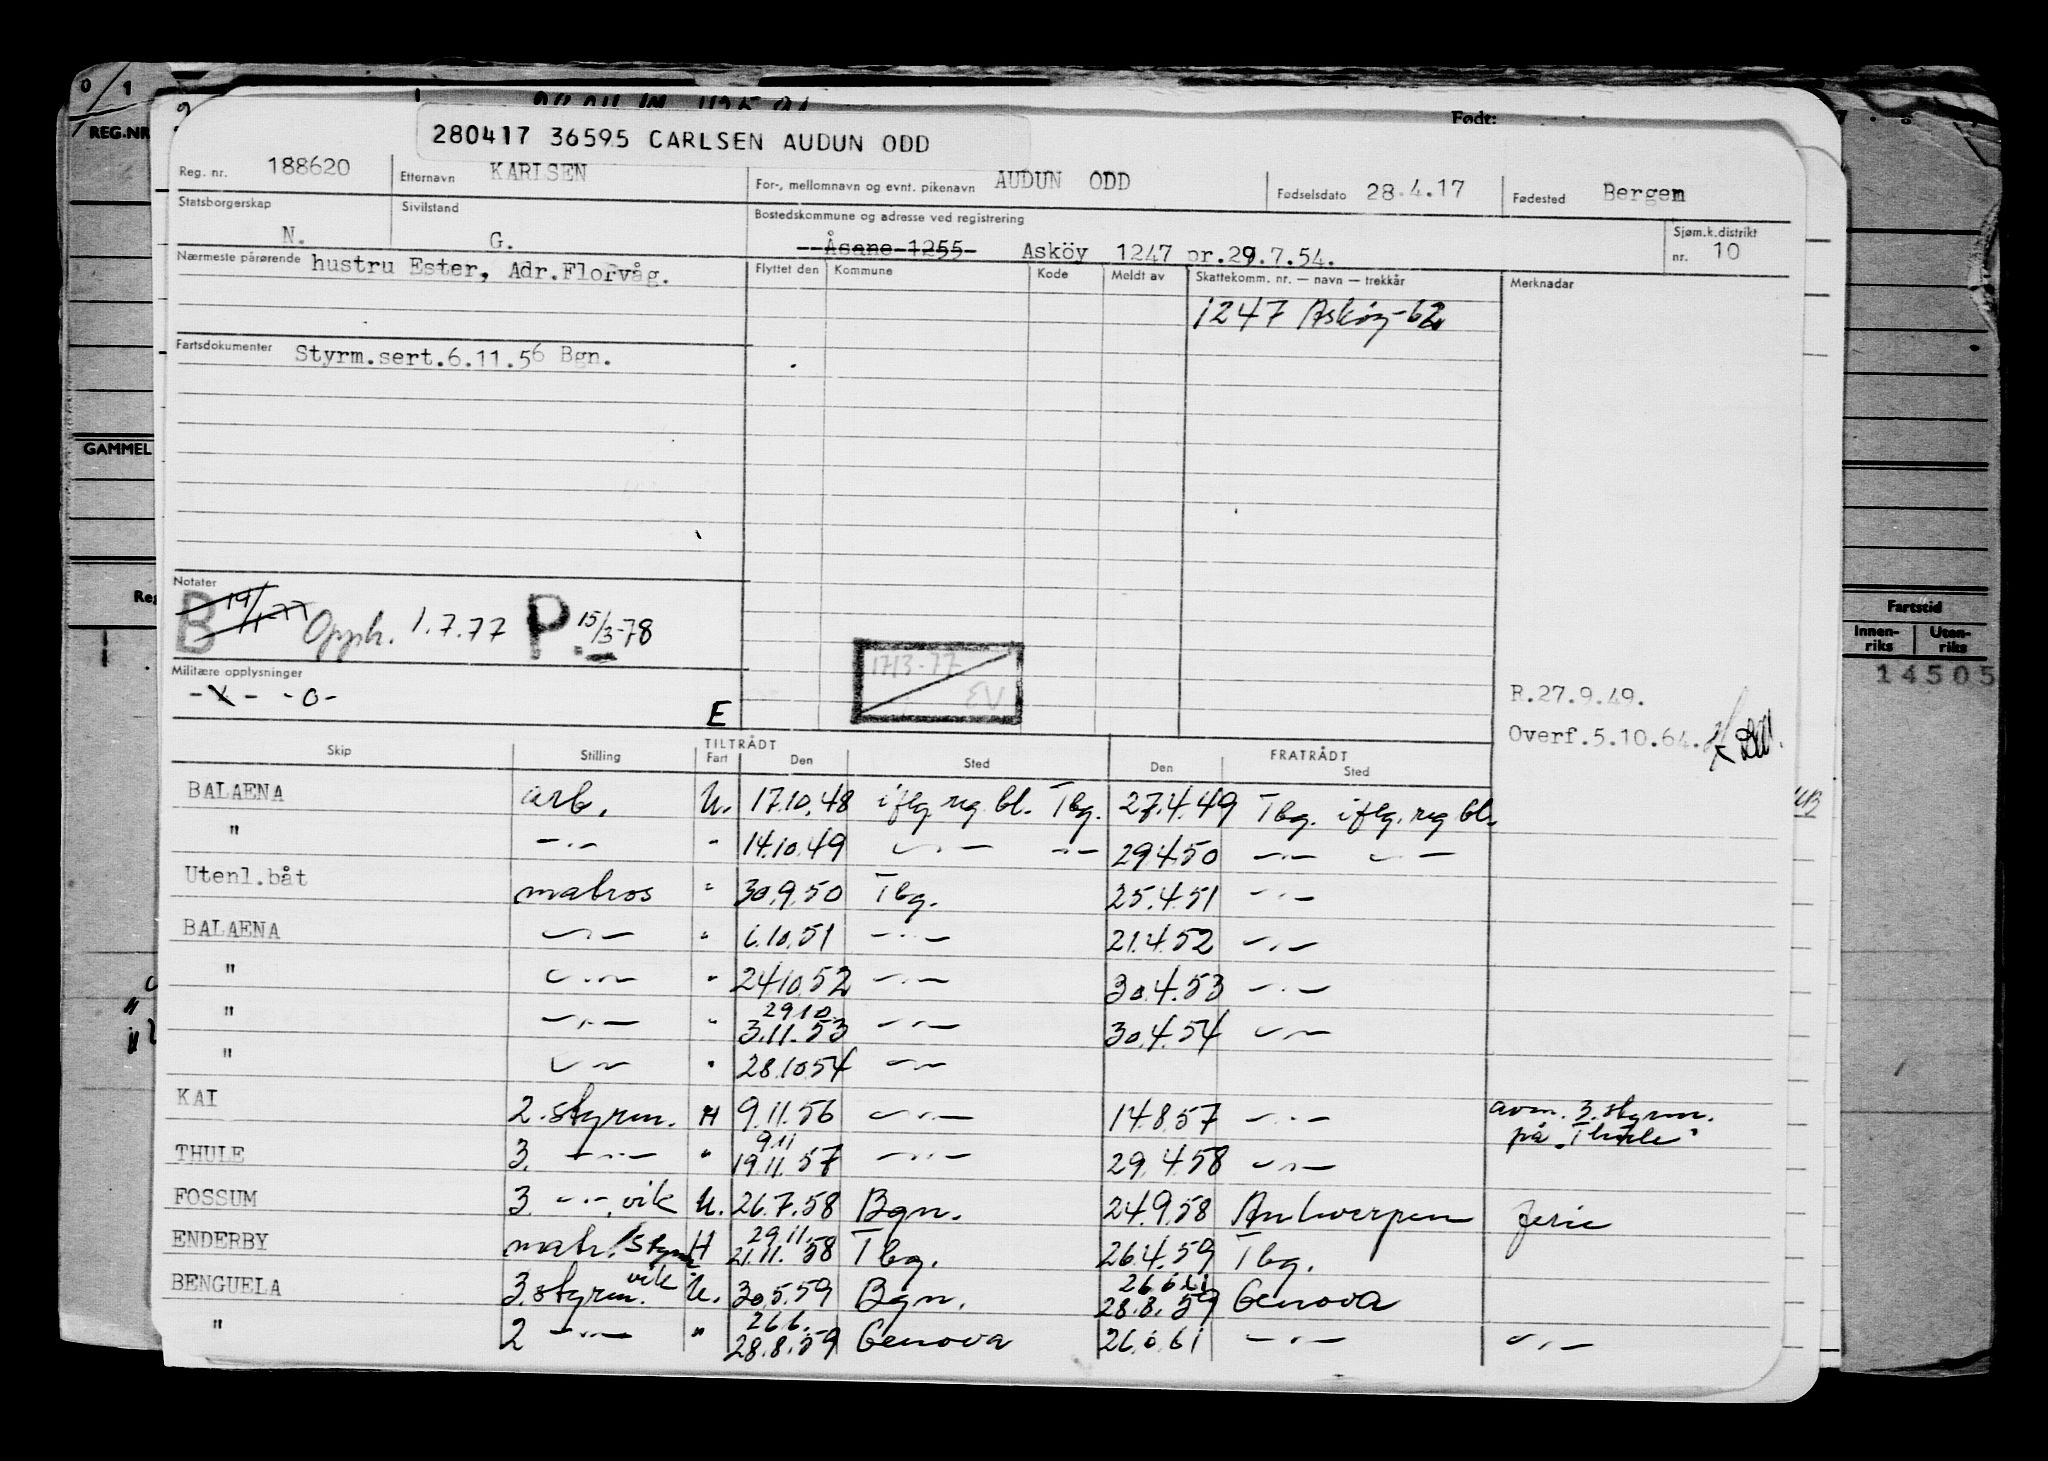 0 1
REG.NR
Født:
280417 36595 CARLSEN AUDUN ODD
Reg. nr. 188620 Etternavn KARLSEN For-, mellomnavn og evnt. pikenavn AUDUN ODD Fødselsdato 28.4.17 Fødested Bergen
Statsborgerskap N. Sivilstand G. Bostedskommune og adresse ved registrering Åsane 1255 Asköy 1247 pr.29.7.54. Sjøm.k.distrikt nr. 10
Nærmeste pårørende hustru Ester, Adr.Florvåg.
Flyttet den Kommune Kode Meldt av Skattekomm. nr. — navn — trekkår Merknadar
1247 Asköy-62
Fartsdokumenter Styrm.sert.6.11.56 Bgn.
GAMMEL
Reg
Notater
B 19/1-77 Opph. 1.7.77 P. 15/3-78
17/3-77
EV
Militære opplysninger
-X- -0-
E
R.27.9.49.
Overf.5.10.64.
Fartstid
Innen-riks Uten-riks
14505
Skip Stilling TILTRÅDT Fart Den Sted FRATRÅDT Den Sted
BALAENA arb. U. 17.10.48 iflg. reg. bl. Tbg. 27.4.49 Tbg. iflg. reg bl.
" —.— " 14.10.49 —.— —.— 29.4.50 —.— —.—
Utenl.båt matros " 30.9.50 Tbg. 25.4.51 —.—
BALAENA —.— " 6.10.51 —.— 21.4.52 —.—
" —.— " 24.10.52 —.— 30.4.53 —.—
" —.— " 29.10. 3.11.53 —.— 30.4.54 —.—
" —.— " 28.10.54 —.—
KAI 2. styrm. H 9.11.56 —.— 14.8.57 —.— avm. 3. styrm. på "Thule"
THULE 3. —.— " 9.11 19.11.57 —.— 29.4.58 —.—
FOSSUM 3. —.— vik U. 26.7.58 Bgn. 24.9.58 Antwerpen ferie
ENDERBY matr./styrm H 29.11. 21.11.58 Tbg. 26.4.59 Tbg.
BENGUELA 3. styrm. vik U. 30.5.59 Bgn. 26.6.61 28.8.59 Genova
" 2 —.— " 26.6. 28.8.59 Genova 26.6.61 —.— —.—